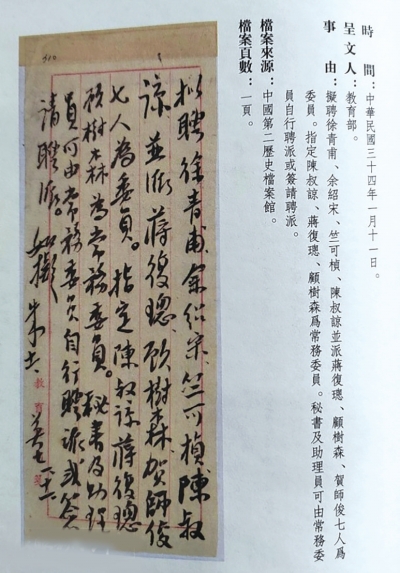 時　間：中華民國三十四年一月十一日。
呈文人：教育部。
事　由：擬聘徐青甫、余紹宋、竺可楨、陳叔諒並派蔣復璁、顧樹森、賀師俊七人爲
委員。指定陳叔諒、蔣復璁、顧樹森爲常務委員。秘書及助理員可由常務委
員自行聘派或簽請聘派。
檔案來源：中國第二歷史檔案館。
檔案頁數：一頁。
拟聘徐青甫余绍宋竺可楨陳叔
諒並派蔣復璁、顾樹森、賀師俊
七人為委員。指定陳叔諒蔣復璁
顾樹森為常務委員。秘書及助理
員可由常務委員自行聘派或簽
請聘派。
如擬
教育